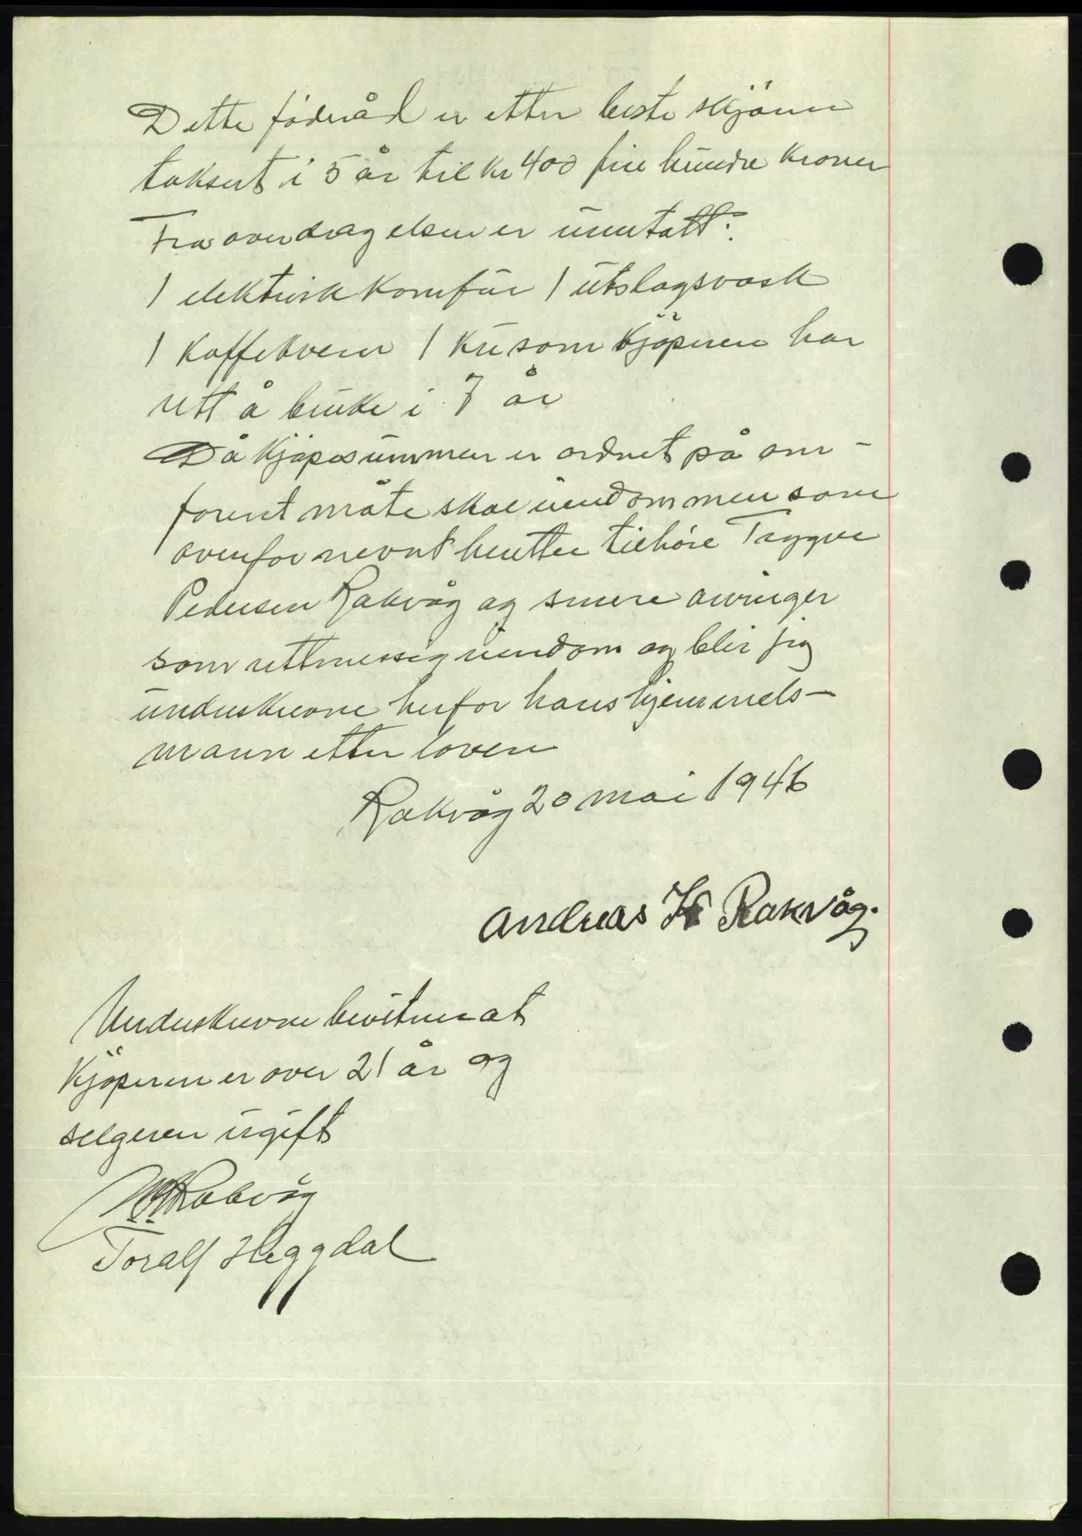 Dette föderåd er etter beste skjönn
taksert i 5 år til kr 400 fire hundre kroner
Fra overdragelsen er unntatt:
1 elektrisk komfür 1 ütslagsvask
1 kaffekvern 1 kü som kjöperen har
rett å brüke i 7 år
Då kjöpesummen er ordnet på om-
forent måte skal eiendommen som
ovenfor nevnt heretter tilhöre Trygve
Pedersen Rakvåg og senere arvinger
som rettmessig eiendom og blir jeg
ünderskrevne herfor hans hjemmels-
mann etter loven
Rakvåg 20 mai 1946
Andreas H Rakvåg.
Underskrevne bevitner at
Kjöperen er over 21 år og
selgeren ügift
Rakvåg
Toralf Heggdal